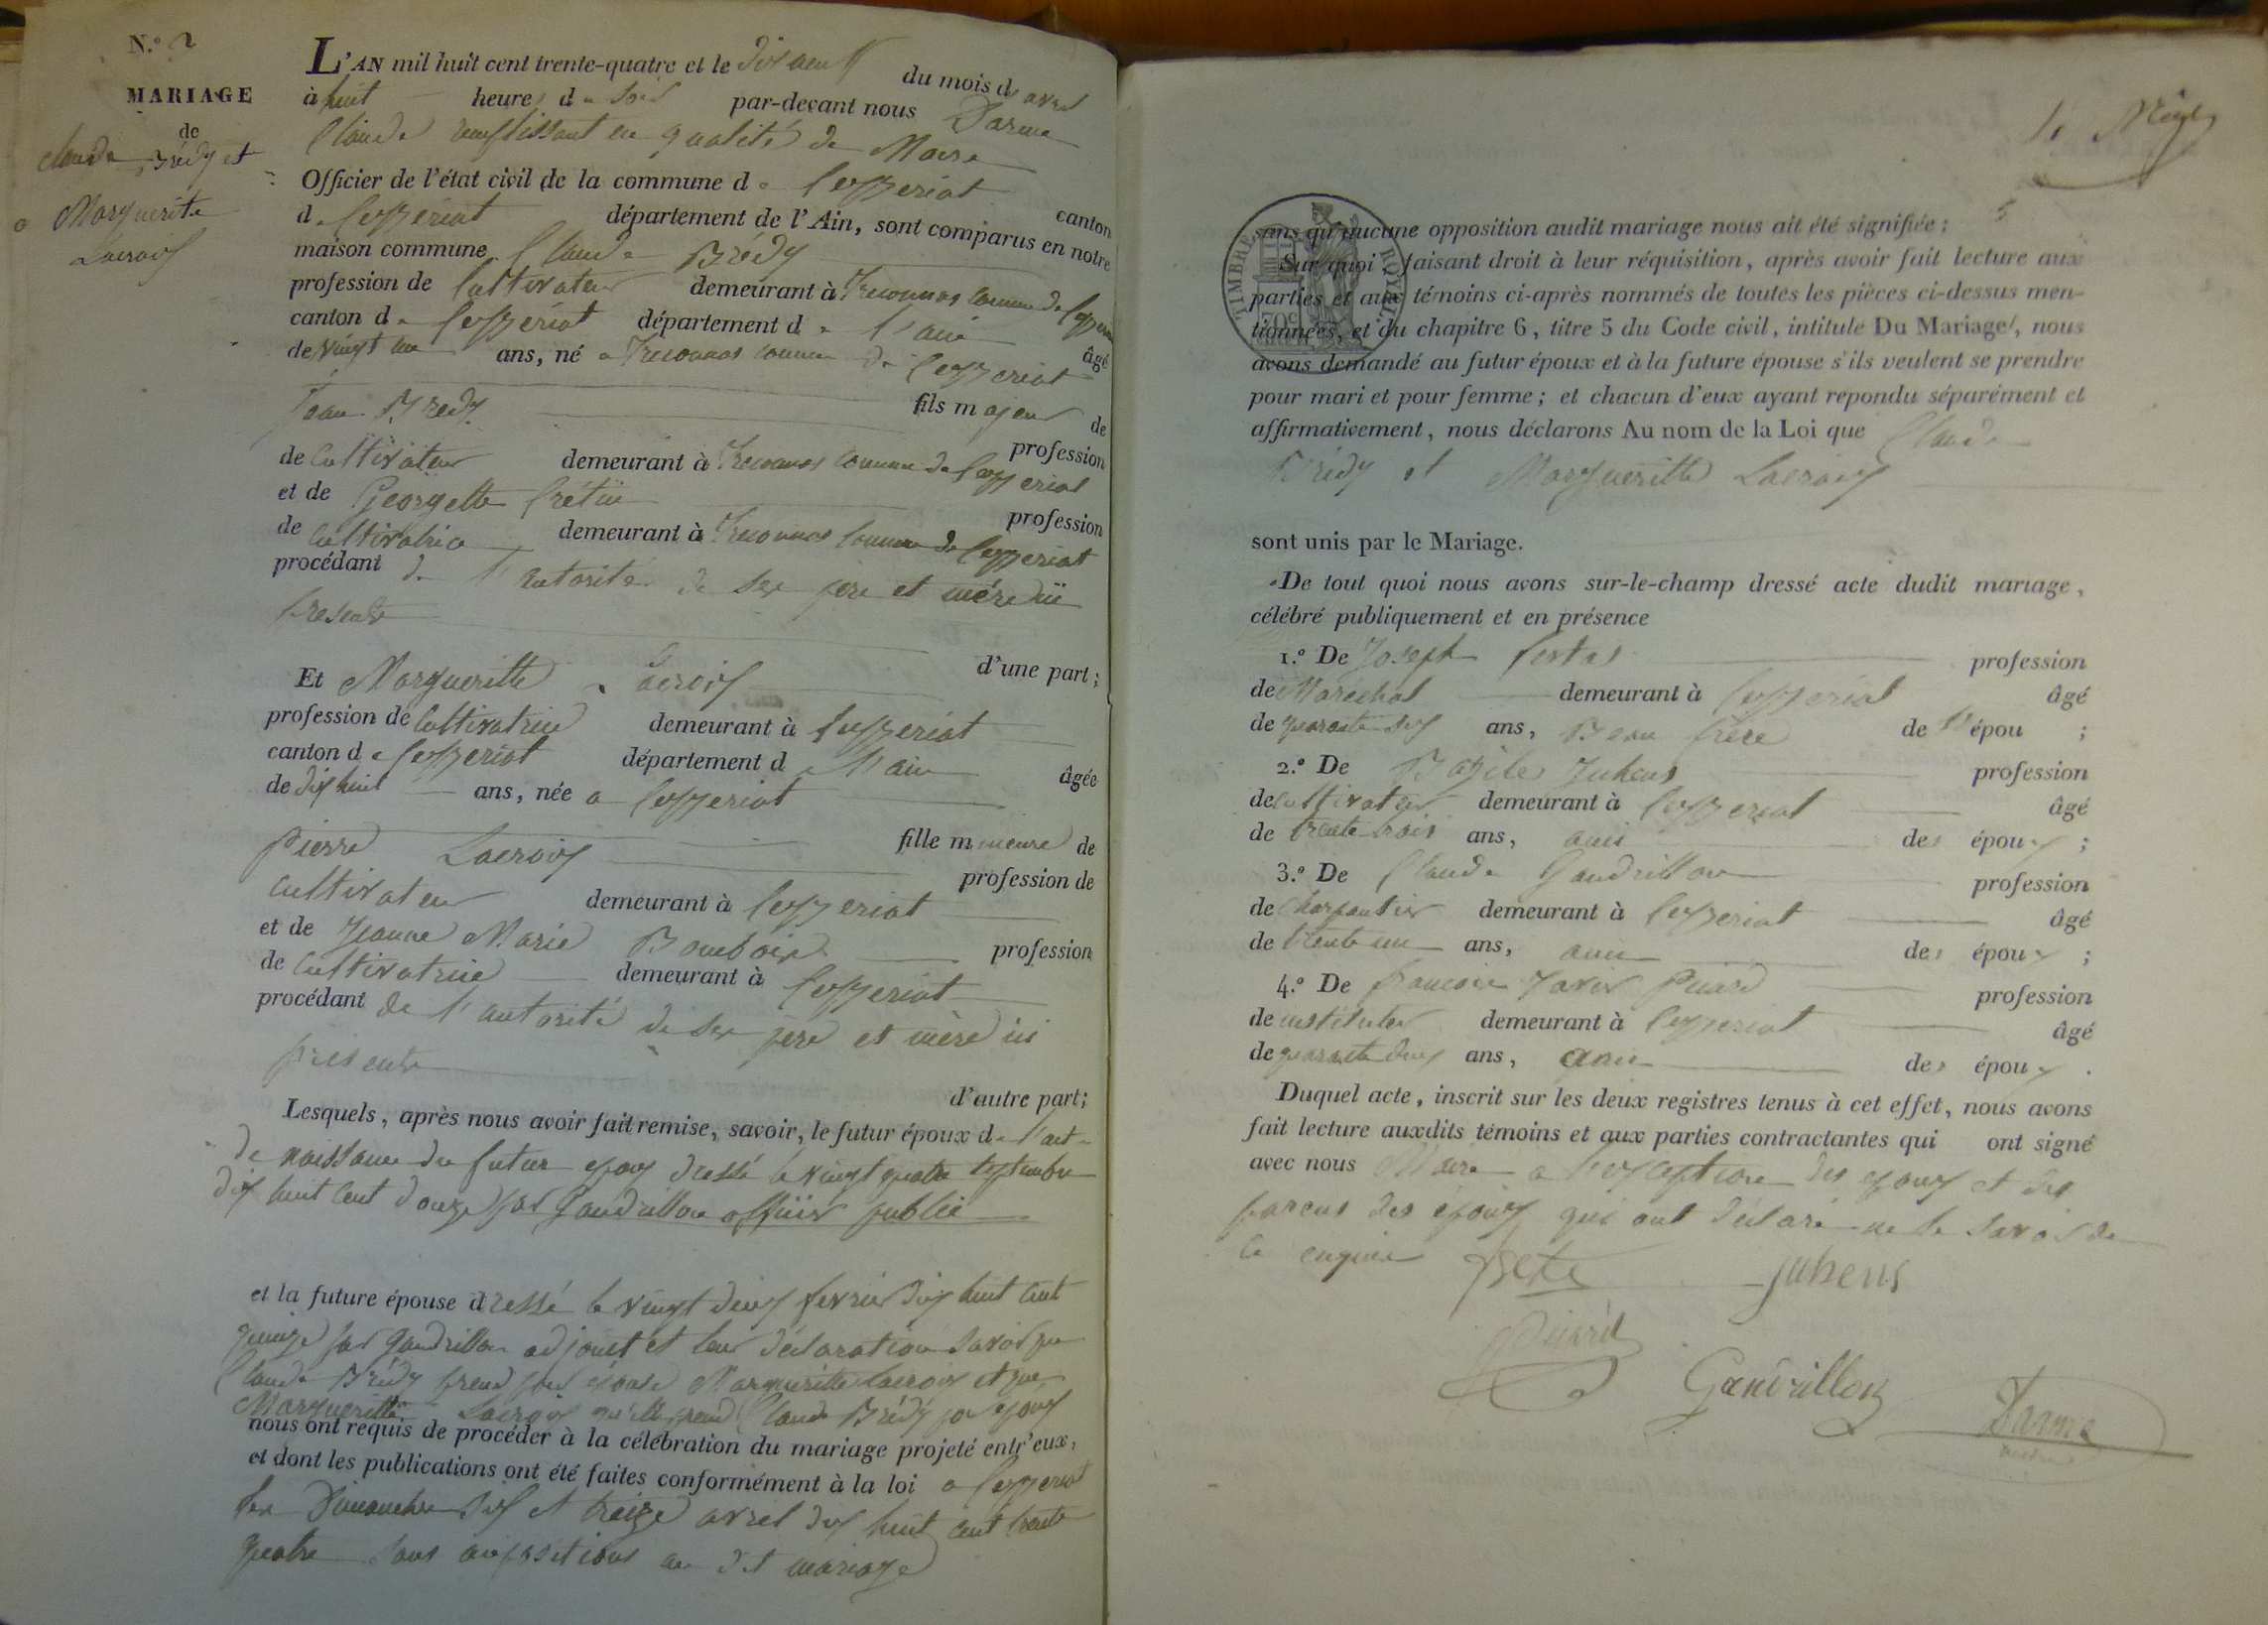 N.º 2
MARIAGE
de
Claude Brédy et
Marguerite
Lacroix
L'AN mil huit cent trente-quatre et le dix neuf du mois d'avril
à huit heures du soir par-devant nous Darme
Claude remplissant en qualité de Maire
Officier de l'état civil de la commune de Ceyzeriat canton
de Ceyzeriat département de l'Ain, sont comparus en notre
maison commune Claude Brédy
profession de Cultivateur demeurant à Treconnas commune de Ceyzeriat
canton de Ceyzeriat département de l'ain âgé
de vingt un ans, né a Treconnas commune de Ceyzeriat
fils majeur de
Jean Bredy profession
de Cultivateur demeurant à Treconnas commune de Ceyzeriat
et de Georgette Crétin profession
de Cultivatrice demeurant à Treconnas commune de Ceyzeriat
procédant de l'autorité de ses pere et mère ici
présents
d'une part;
Et Margueritte Lacroix
profession de Cultivatrice demeurant à Ceyzeriat
canton de Ceyzeriat département de l'ain âgée
de dix huit ans, née a Ceyzeriat
fille mineure de
Pierre Lacroix profession de
cultivateur demeurant à Ceyzeriat
et de Jeanne Marie profession
de Cultivatrice demeurant à Ceyzeriat
procédant de l'autorité de ses pere et mère ici
présents
d'autre part;
Lesquels, après nous avoir fait remise, savoir, le futur époux de l'act
de naissance du futur epoux dressé le vingt quatre septembre
dix huit cent douze par Gandrillon officier public
et la future épouse dressé le vingt deux fevrier dix huit cent
quinze par Gandrillon adjoint et leur déclaration savoir que
Claude Brédy prend pour épouse Margueritte Lacroix et que
Margueritte Lacroix qu'elle prend Claude Brédy pour epoux
nous ont requis de procéder à la célébration du mariage projeté entr'eux,
et dont les publications ont été faites conformément à la loi a Ceyzeriat
les Dimanches six et treize avril dix huit cent trente
quatre sans oppositions au dit mariage
5
TIMBRE ROYAL
sans qu'aucune opposition audit mariage nous ait été signifiée;
Sur quoi, faisant droit à leur réquisition, après avoir fait lecture aux
parties et aux témoins ci-après nommés de toutes les pièces ci-dessus men-
tionnées, et du chapitre 6, titre 5 du Code civil, intitulé Du Mariage, nous
avons demandé au futur époux et à la future épouse s'ils veulent se prendre
pour mari et pour femme; et chacun d'eux ayant répondu séparément et
affirmativement, nous déclarons Au nom de la Loi que Claude
Brédy et Margueritte Lacroix
sont unis par le Mariage.
De tout quoi nous avons sur-le-champ dressé acte dudit mariage,
célébré publiquement et en présence
1.º De Joseph profession
de Maréchal demeurant à Ceyzeriat âgé
de ans, Beau frère de l'épou ;
2.º De Bazile Juhens profession
de cultivateur demeurant à Ceyzeriat âgé
de trente trois ans, ami des époux ;
3.º De Claude Gandrillon profession
de Charpentier demeurant à Ceyzeriat âgé
de trente un ans, ami des époux ;
4.º De francois Xavier Picard profession
de instituteur demeurant à Ceyzeriat âgé
de quarante deux ans, ami des époux .
Duquel acte, inscrit sur les deux registres tenus à cet effet, nous avons
fait lecture auxdits témoins et aux parties contractantes qui ont signé
avec nous Maire a l'exception des epoux et des
parens des époux qui ont déclaré ne le savoir de
ce enquis
Juhens
Picard
Gandrillon
Darme